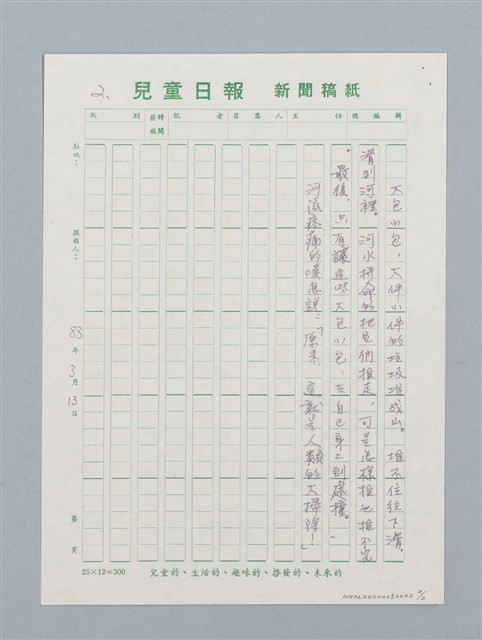 2.
兒童日報 新聞稿紙
版 別 發稿時間 記 者 召 集 人 主 任 總 編 輯
大包小包,大件小件的垃圾堆成山。堆不住往下滑,
滑到河裡。河水拼命的把它們推走,可是怎樣推也推不完。
最後,只有讓這些大包小包,在自己身上到處撞。
河流疼痛的嘆息說:「原來,這就是人類的大掃除!」
駐地:
撰稿人:
83年3月13日
第 頁
25×12=300 兒童的、生活的、趣味的、啓發的、未來的
NMTL20200030022 2/2